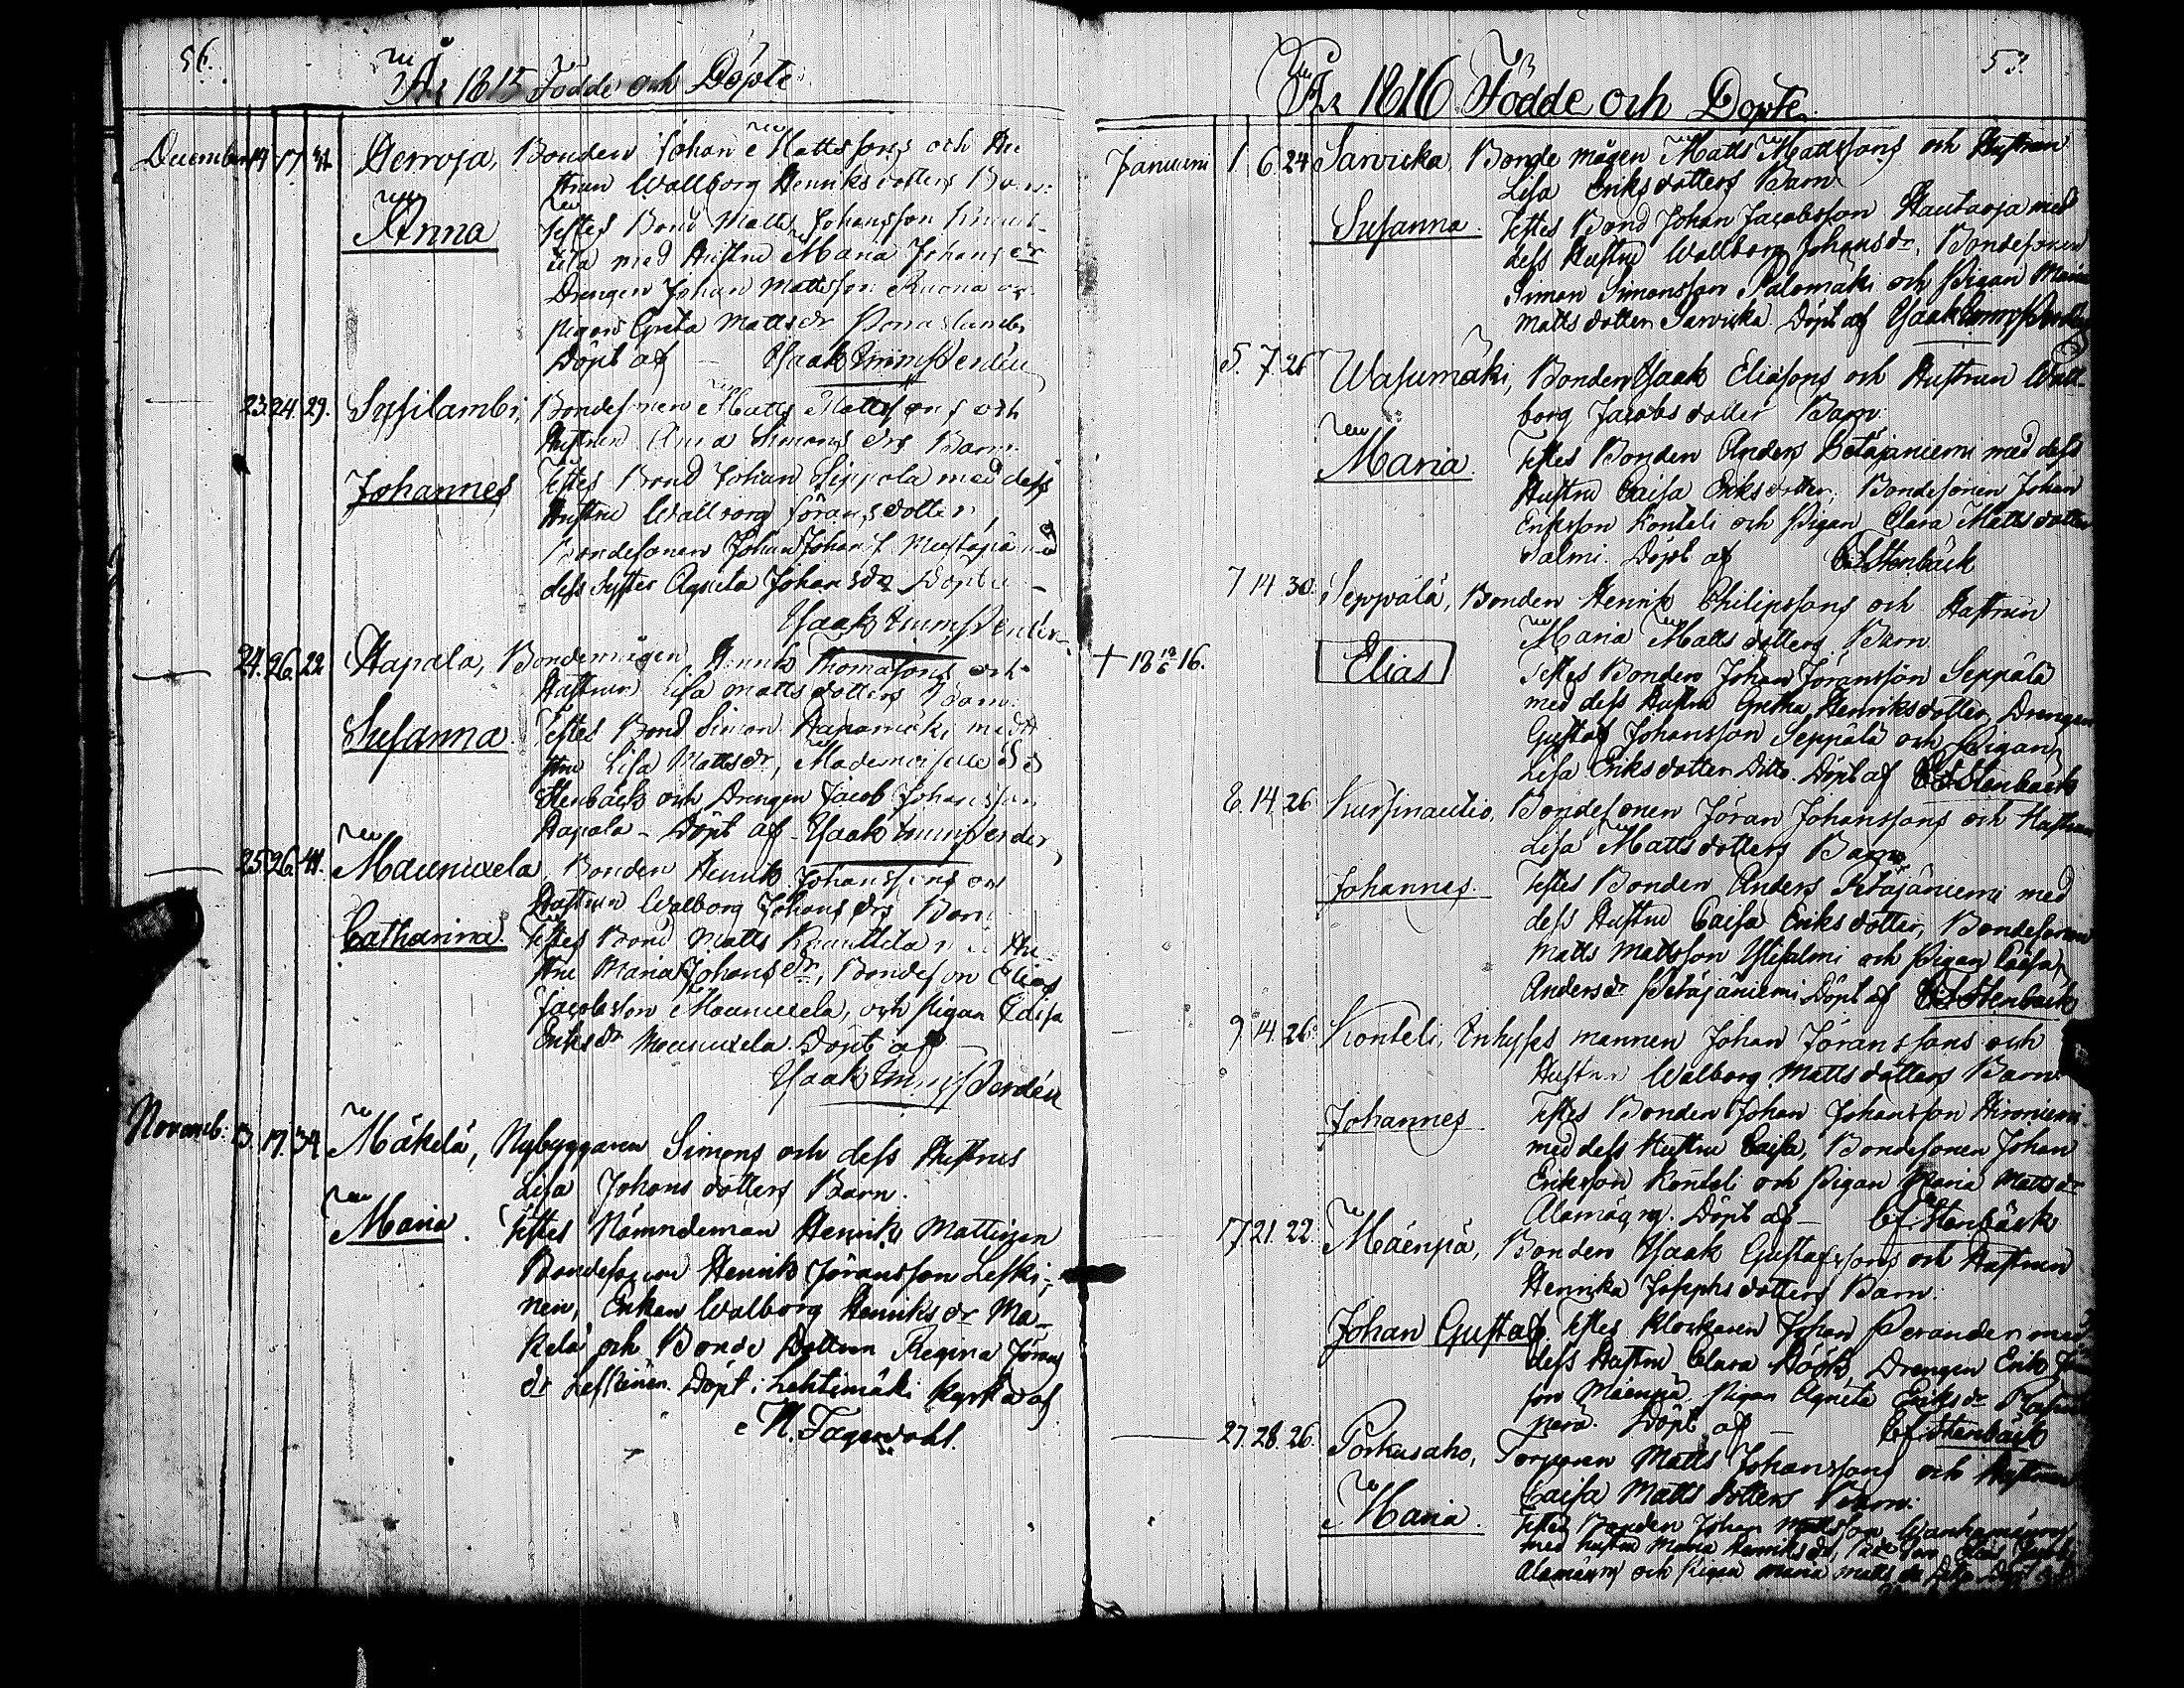 56.
År 1815 Födde och Döpte
December 19. 17. 31. Herroja, Bonden Johan Mattssons och Hu
strun Wallborg Henriksdotters Barn:
Anna
Testes Bond Matts Johansson Knuut-
tila med Hustru Maria Johans dr
Drengen Johan Mattsson Ruona
pigan Greta Matts dr
Döpt af Isaak Perdén
23. 24. 29. Sysilambi, Bondesonen Matts Mattssons och
Hustrun Anna Simons drs Barn.
Johannes Testes Bond Johan Seppola med dess
Hustru Wallborg Jöransdotter,
Bondesonen Johan Johans
dess Syster Agneta Johans dr Döpte
Isaak Perdén
24. 26. 22 Hapala, Bondemågen Henrik Thomassons och
Hustrun Lisa Mattsdotters Barn:
Susanna. Testes Bond Simon Hapamäki med H
stru Lisa Mattsdr, Mademoiselle
Stenbäck och Drengen Jacob Johansson
Hapala - Döpt af - Isaak Perdén
25. 26. 41. Maunuxela, Bonden Henrik Johanssons och
Hustrun Walborg Johans drs Barn
Catharina. Testes Bond Matts Knuuttila Hu-
stru Maria Johans dr, Bondeson Elias
Jacobsson Maunuxela, och Pigan
Eriks dr Maunuxela. Döpt af
Isaak Perdén
Novemb: 13. 19. 34. Mäkelä, Nybyggaren Simons och dess Hustrus
Lisa Johans dotters Barn.
Maria. Testes Nämndeman Henrik Mattinen
Bondesonen Henrik Jöransson Leski-
nen, Enkan Walborg Henriks dr Mä-
kelä och Bonde Dottren Regina Jörans
dr Leskinen. Döpt i Lehtimäki Kyrka af
N. Fagerdahl.
53.
År 1816 Födde och Döpte.
Januarii 1. 6. 24 Sarvicka, Bonde mågen Matts Mattssons och Hustrun
Lisa Eriksdotters Barn
Susanna. Testes Bond Johan Jacobsson Hautaoja med
dess Hustru Wallborg Johansdr, Bondesonen
Simon Simonsson Palomäki och Pigan Maria
Matts dotter Sarvicka. Döpt af Isaak
5. 7. 28 Wasumäki, Bonden Isaak Eliasons och Hustrun Wall-
borg Jacobs dotter Barn:
Maria. Testes Bonden Anders Petäjäniemi med dess
Hustru Caisa Eriksdotter, Bondesonen Johan
Eriksson Konteli och Pigan Clara Matts dotter
Salmi. Döpt af Stenbäck
7 14. 30. Seppälä, Bonden Henrik Philipssons och Hustrun
Maria Matts dotters Barn
+ 18 16. Elias
Testes Bonden Johan Jöransson Seppälä
med dess Hustru Gretha Henriksdotter, Drengen
Gustaf Johansson Seppälä och Pigan
Lisa Eriksdotter Ditto. Döpt af Stenbäck
8. 14. 26 Kursinautio, Bondesonen Jöran Johanssons och Hustrun
Lisa Matts dotters Barn
Johannes. Testes Bonden Anders Petäjäniemi med
dess Hustru Caisa Eriks dotter, Bondesonen
Matts Mattsson Ylisalmi och Pigan Caisa
Andersdr Petäjäniemi Döpt af Stenbäck
9 14. 26. Konteli, Inhyses mannen Johan Jöranssons och
Hustrun Walborg Mattsdotters Barn:
Johannes Testes Bonden Johan Johansson Hironiemi
med dess Hustru Caisa, Bondesonen Johan
Eriksson Konteli och Pigan Maria Matts dr
Alamägry. Döpt af - Stenbäck
17 21. 22. Mäenpä, Bonden Isaak Gustafssons och Hustrun
Henrika Josephs dotters Barn:
Johan Gustaf. Testes Klockaren Johan Perander med
dess Hustru Clara Höök, Drengen Erik
son Mäenpä, Pigan Agneta Eriks dr
perä. Döpt af - Stenbäck
27. 28. 26. Porkusaho, Torparen Matts Johanssons och Hustrun
Caisa Matts dotters Barn:
Maria. Testes Bonden Johan Mattsson
med hustru Maria Henriks dr,
Alamägry och Pigan Maria Matts dr